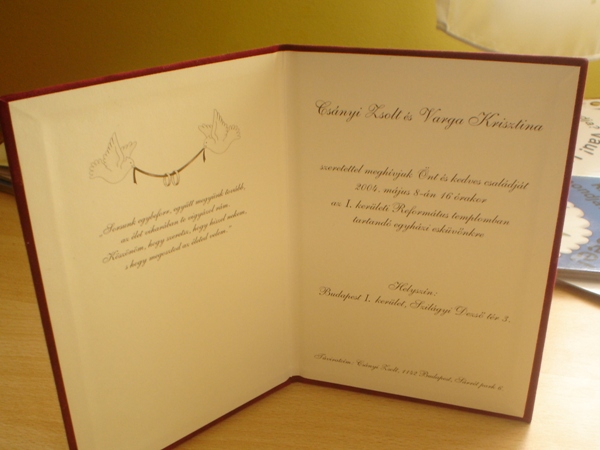 „Sorsunk egybeforr, együtt megyünk tovább,
az élet viharában te vigyázol rám.
Köszönöm, hogy szeretsz, hogy hiszel nekem,
s hogy megosztod az életed velem."
Csányi Zsolt és Varga Krisztina
szeretettel meghívjuk Önt és kedves családját
2004. május 8-án 16 órakor
az I. kerületi Református templomban
tartandó egyházi esküvőnkre
Helyszín:
Budapest I. kerület, Szilágyi Dezső tér 3.
Csányi Zsolt, 1152 Budapest,